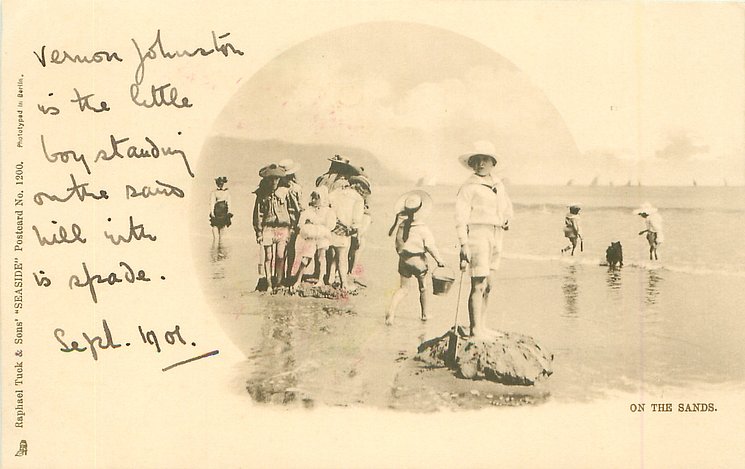 Vernon Johnston
is the little
boy standing
on the sand
hill with
is spade.
Sept. 1901.
Raphael Tuck & Sons' "SEASIDE" Postcard No. 1200. Phototyped in Berlin.
ON THE SANDS.